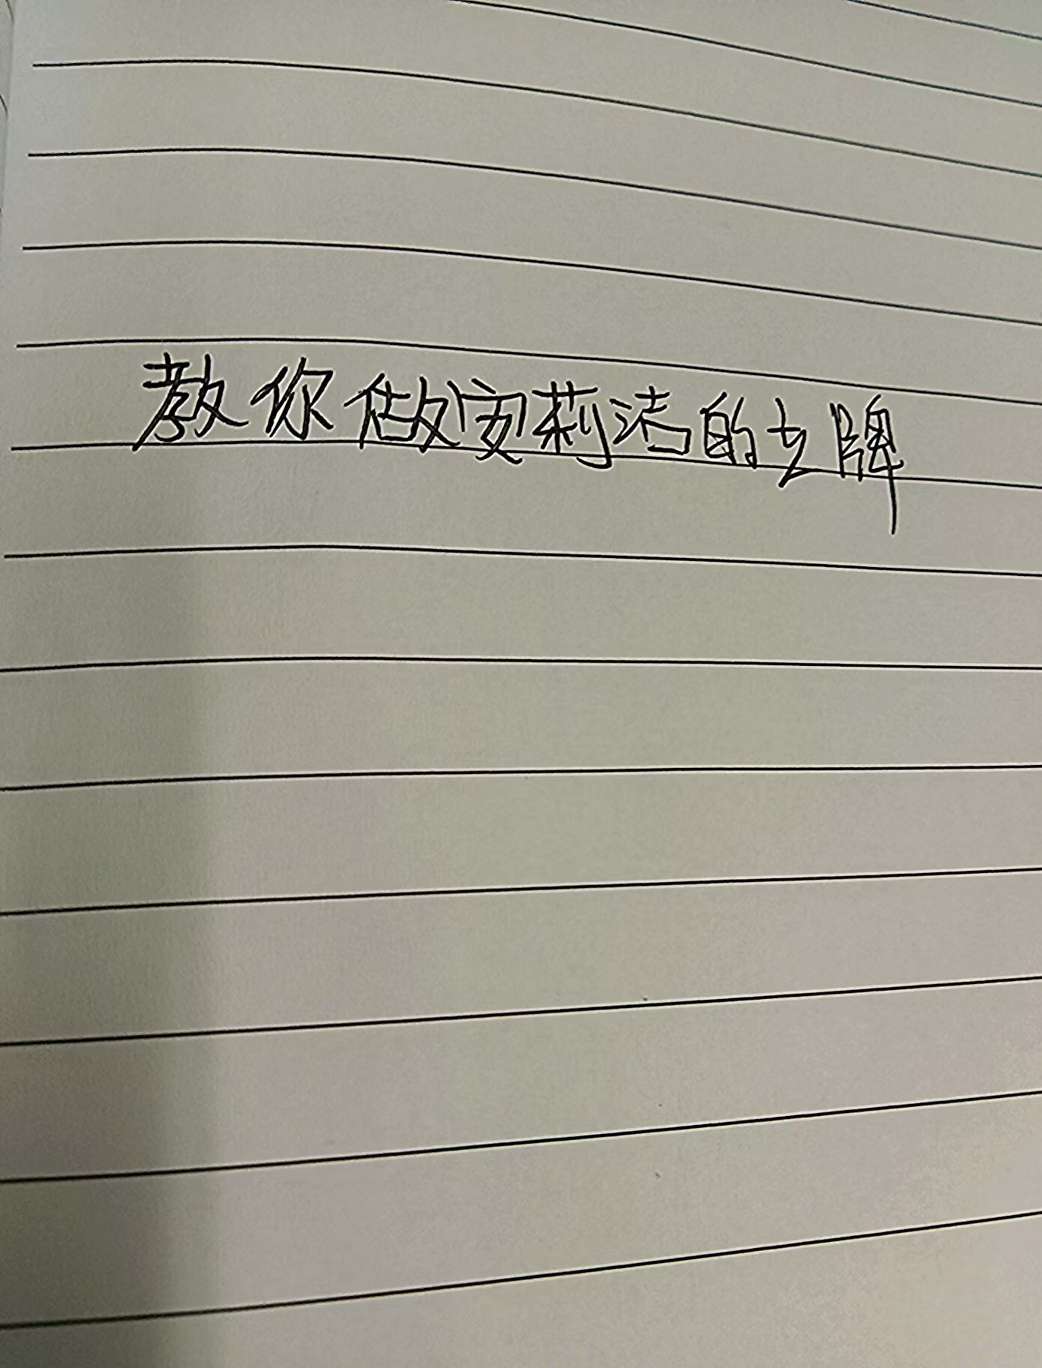 教你做安莉洁的立牌